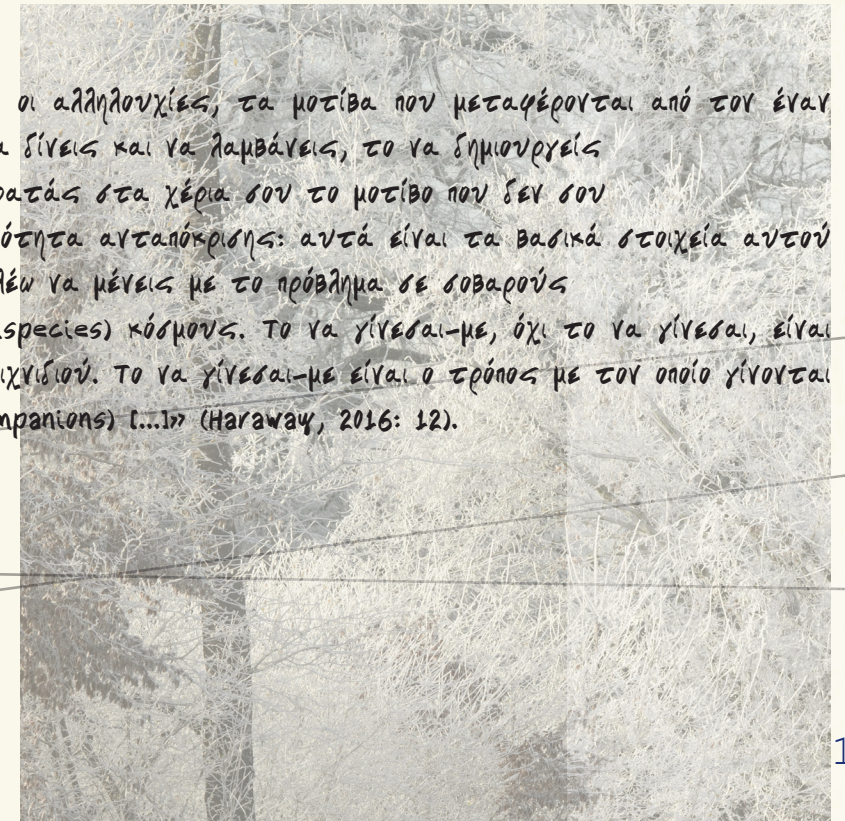 οι αλληλουχίες, τα μοτίβα που μεταφέρονται από τον έναν
δίνεις και να λαμβάνεις, το να δημιουργείς
στα χέρια σου το μοτίβο που δεν σου
ανταπόκρισης: αυτά είναι τα βασικά στοιχεία αυτού
να μένεις με το πρόβλημα σε σοβαρούς
species) κόσμους. Το να γίνεσαι-με, όχι το να γίνεσαι, είναι
Το να γίνεσαι-με είναι ο τρόπος με τον οποίο γίνονται
[...]» (Haraway, 2016: 12).